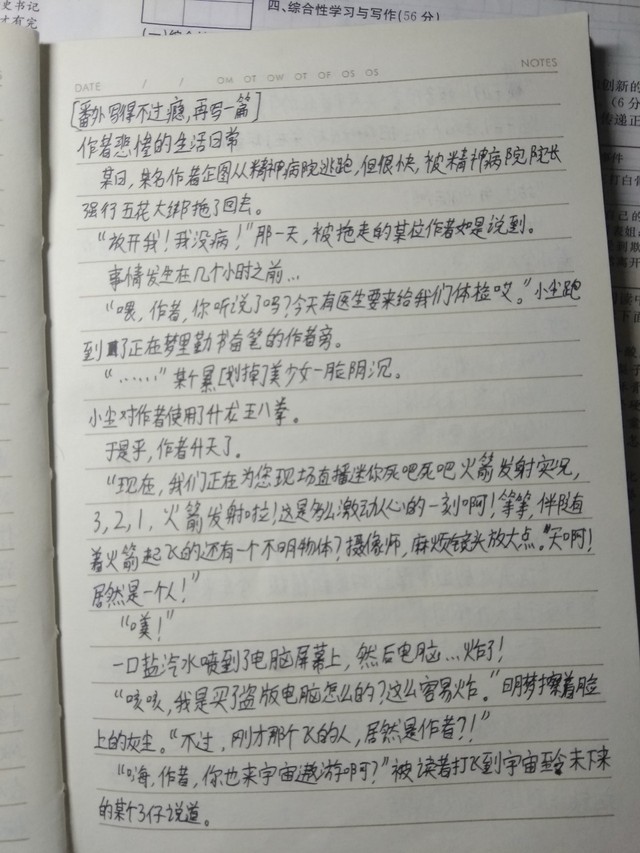 史书记
才有完
四、综合性学习与写作(56分)
DATE / / OM OT OW OT OF OS OS NOTES
[番外写得不过瘾,再写一篇]
作者悲惨的生活日常
某日,某名作者企图从精神病院逃跑,但很快,被精神病院院长
强行五花大绑拖了回去。
“放开我!我没病!”那一天,被拖走的某位作者如是说到。
事情发生在几个小时之前...
“喂,作者,你听说了吗?今天有医生要来给我们体检哎。”小尘跑
到了正在梦里勤书奋笔的作者旁。
“……”某个累[划掉]美少女一脸阴沉。
小尘对作者使用了升龙王八拳。
于是乎,作者升天了。
“现在,我们正在为您现场直播迷你死吧死吧火箭发射实况,
3,2,1,火箭发射啦!这是多么激动人心的一刻啊!等等,伴随
着火箭起飞的还有一个不明物体?摄像师,麻烦镜头放大点。“天啊!
居然是一个人!”
“噗!”
一口盐汽水喷到了电脑屏幕上,然后电脑...炸了!
“咳咳,我是买了盗版电脑怎么的?这么容易炸。”明梦擦着脸
上的灰尘。“不过,刚才那个飞的人,居然是作者?!”
“嗨,作者,你也来宇宙遨游啊?”被读者打飞到宇宙至今未下来
的某个仔说道。
创新的
(6分
传递正
事件
打白骨